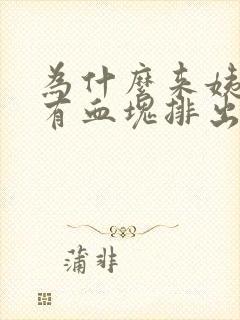 為什麼来姨
有血塊排出
蒲非